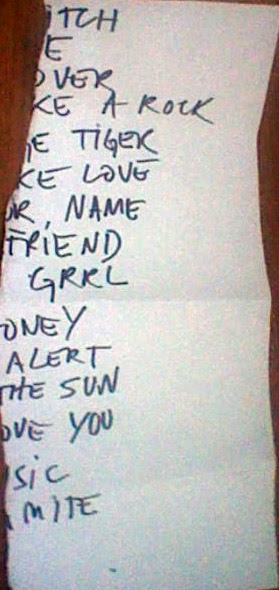 ITCH
E
OVER
KE A ROCK
E TIGER
KE LOVE
UR NAME
FRIEND
GRRL
ONEY
ALERT
THE SUN
OVE YOU
SIC
MITE